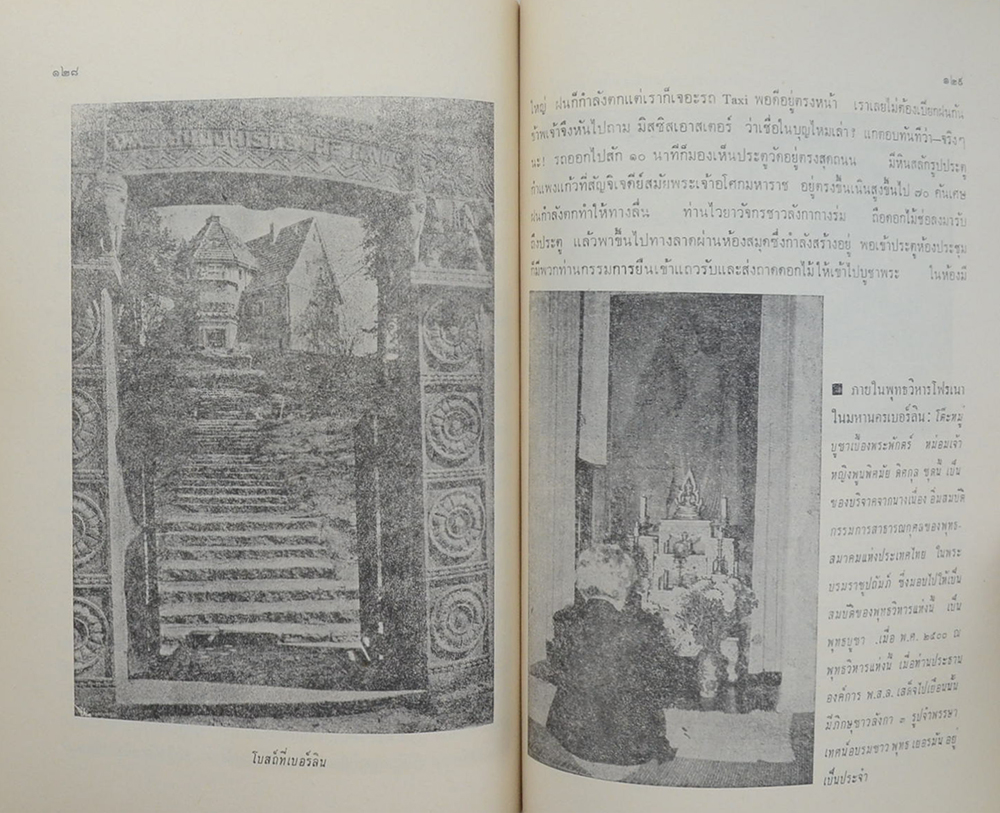 ๑๒๘
โบสถ์ที่เบอร์ลิน
๑๒๙
ใหญ่ ฝนก็กำลังตกแต่เราก็เจอะรถ Taxi พอดีอยู่ตรงหน้า เราเลยไม่ต้องเปียกฝนกัน
ข้าพเจ้าจึงหันไปถาม มิสซิสเอาสเตอร์ ว่าเชื่อในบุญไหมเล่า? แกตอบทันทีว่า—จริงๆ
นะ! รถออกไปสัก ๑๐ นาทีก็มองเห็นประตูวัดอยู่ตรงสุดถนน มีหินสลักรูปประตู
กำแพงแก้วที่สัญจิเจดีย์สมัยพระเจ้าอโศกมหาราช อยู่ตรงขึ้นเนินสูงขึ้นไป ๗๐ คันเศษ
ฝนกำลังตกทำให้ทางลื่น ท่านไวยาวัจกรชาวลังกากางร่ม ถือดอกไม้ช่อลงมารับ
ถึงประตู แล้วพาขึ้นไปทางลาดผ่านห้องสมุดซึ่งกำลังสร้างอยู่ พอเข้าประตูห้องประชุม
ก็มีพวกท่านกรรมการยืนเข้าแถวรับและส่งถาดดอกไม้ให้เข้าไปบูชาพระ ในห้องมี
■ ภายในพุทธวิหารโฟรเนา
ในมหานครเบอร์ลิน: โต๊ะหมู่
บูชาเบื้องพระพักตร์ หม่อมเจ้า
หญิงพูนพิศมัย ดิศกุล ชุดนี้ เป็น
ของบริจาคจากนางเนื่อง อิ่มสมบัติ
กรรมการสาธารณกุศลของพุทธ-
สมาคมแห่งประเทศไทย ในพระ
บรมราชูปถัมภ์ ซึ่งมอบไปให้เป็น
สมบัติของพุทธวิหารแห่งนี้ เป็น
พุทธบูชา เมื่อ พ.ศ. ๒๕๐๐ ณ
พุทธวิหารแห่งนี้ เมื่อท่านประธาน
องค์การ พ.ส.ล. เสด็จไปเยือนนั้น
มีภิกษุชาวลังกา ๓ รูปจำพรรษา
เทศน์อบรมชาว พุทธ เยอรมัน อยู่
เป็นประจำ